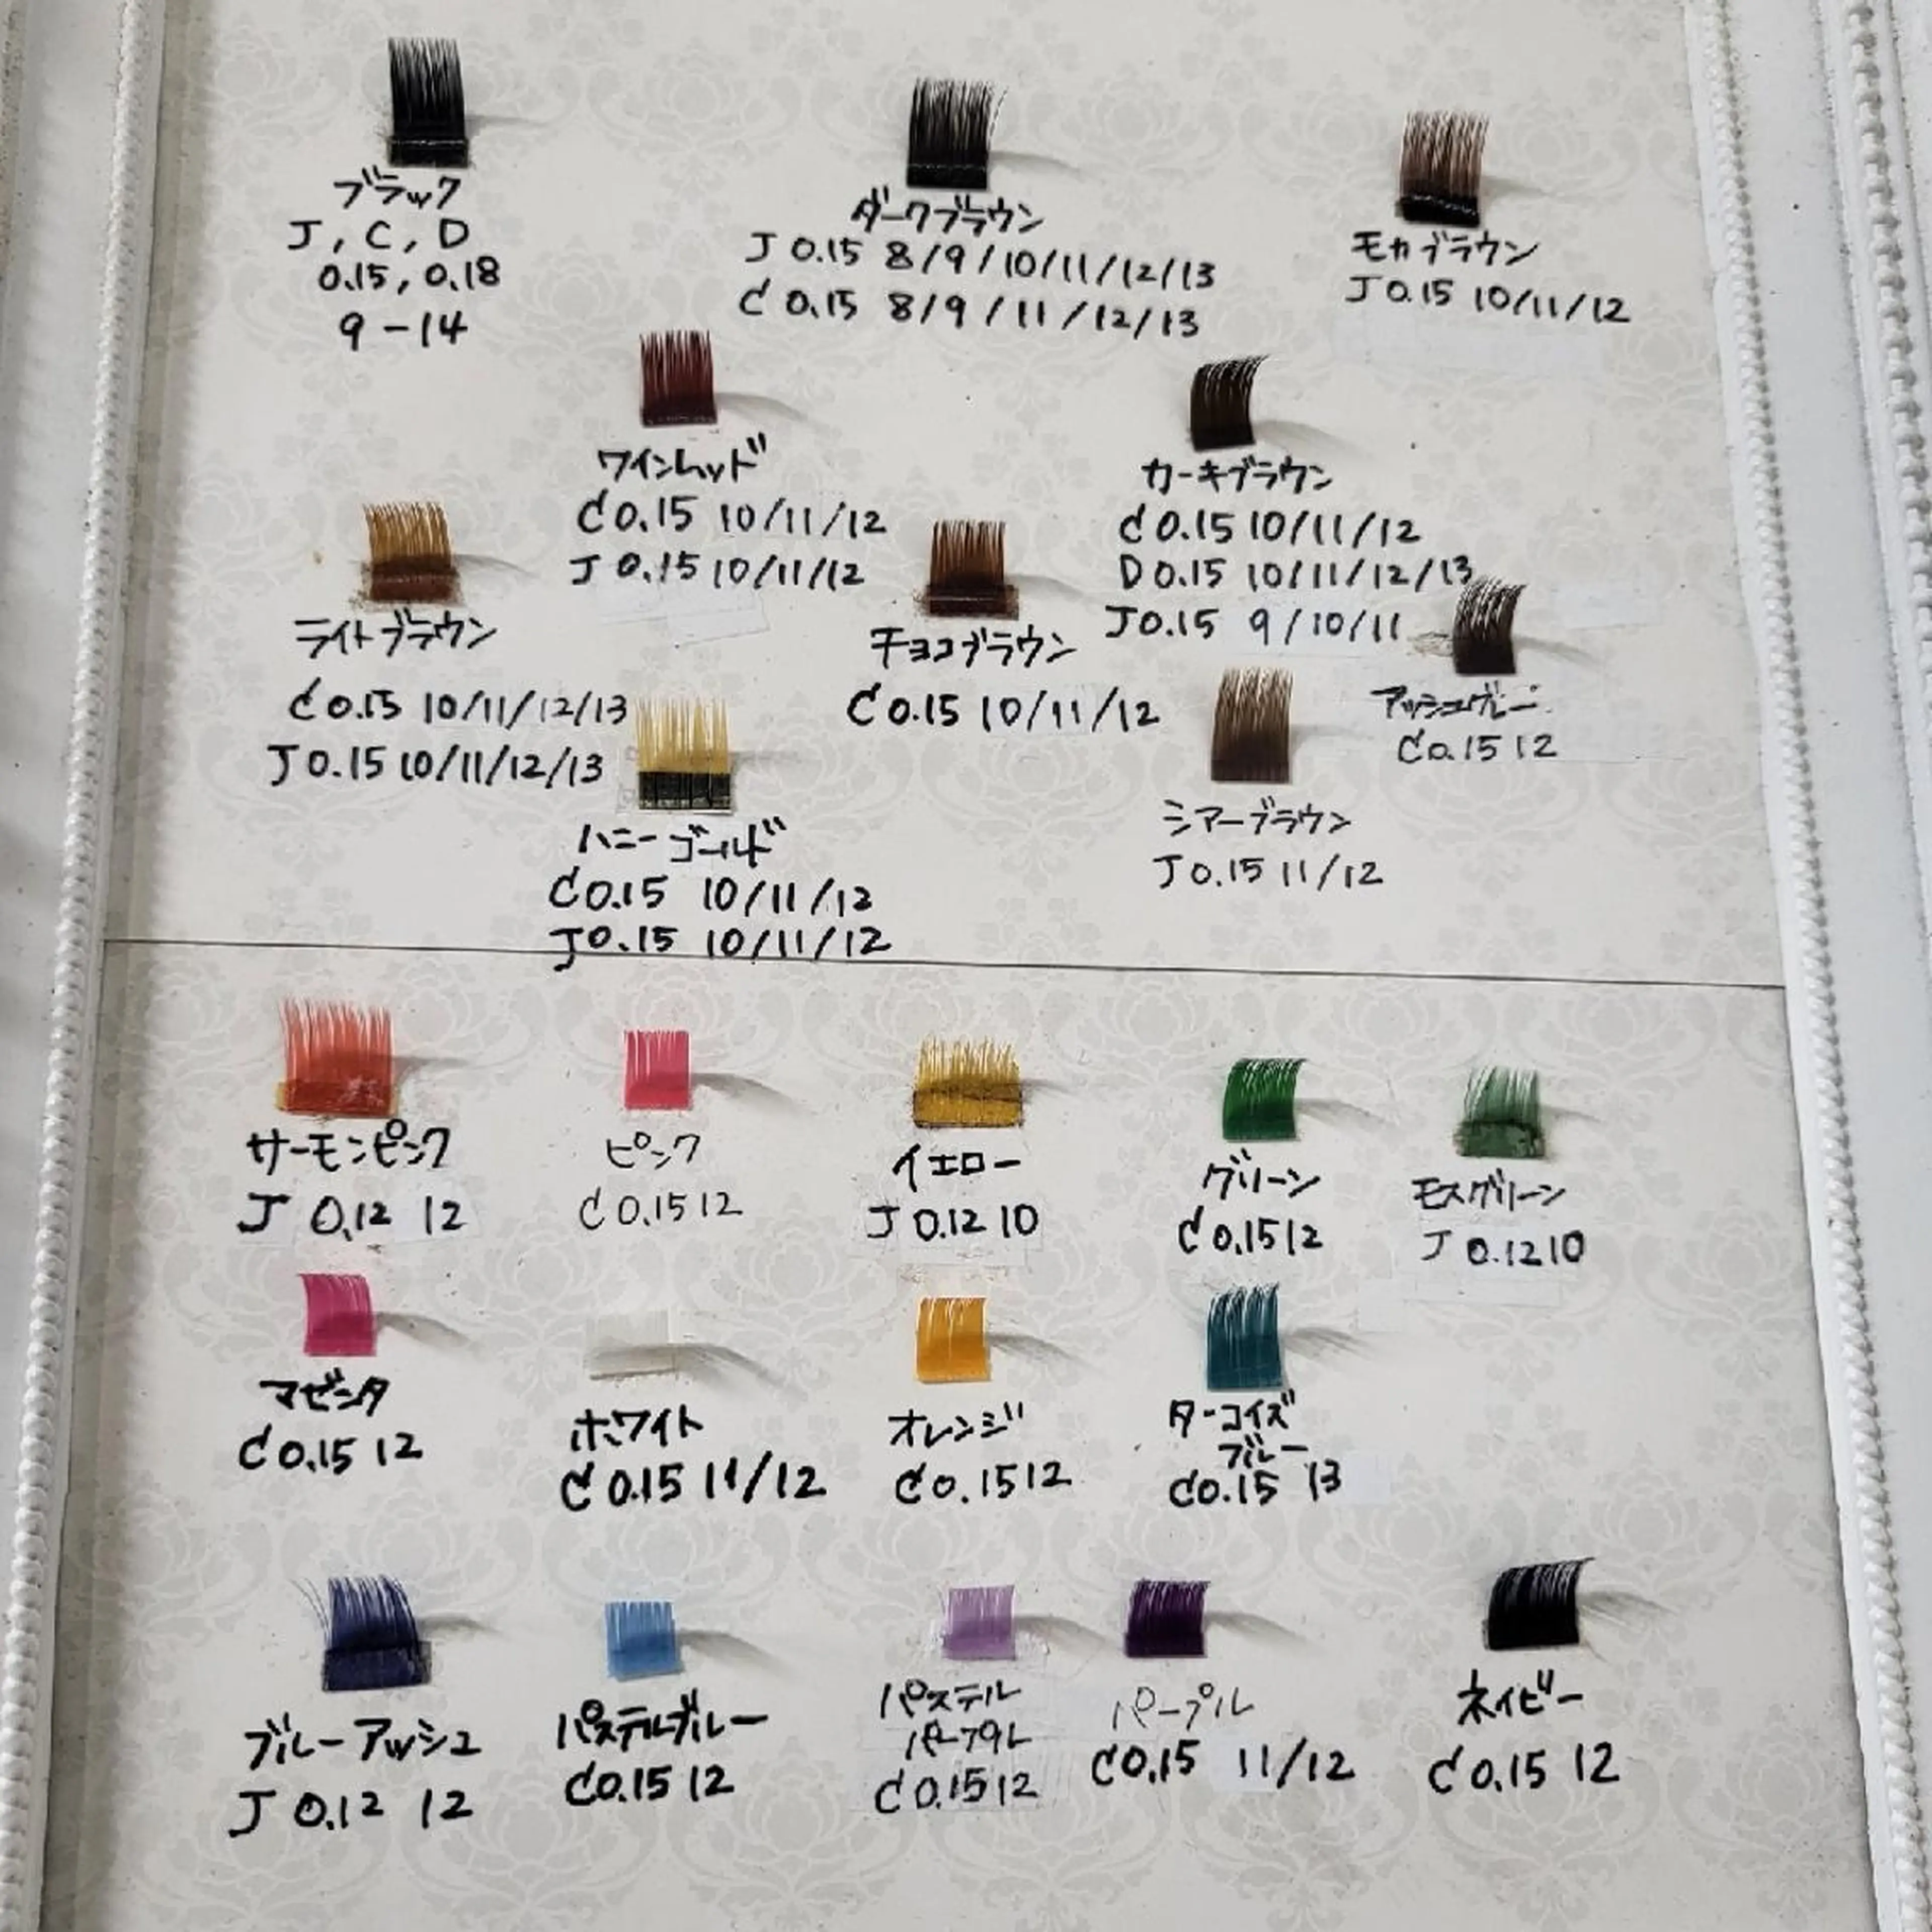 ブラック
J, C, D
0.15, 0.18
9-14
ダークブラウン
J 0.15 8/9/10/11/12/13
C 0.15 8/9/11/12/13
モカブラウン
J 0.15 10/11/12
ワインレッド
C 0.15 10/11/12
J 0.15 10/11/12
カーキブラウン
C 0.15 10/11/12
D 0.15 10/11/12/13
J 0.15 9/10/11
ライトブラウン
C 0.15 10/11/12/13
J 0.15 10/11/12/13
チョコブラウン
C 0.15 10/11/12
アッシュグレー
C 0.15 12
ハニーゴールド
C 0.15 10/11/12
J 0.15 10/11/12
シアーブラウン
J 0.15 11/12
サーモンピンク
J 0.12 12
ピンク
C 0.15 12
イエロー
J 0.12 10
グリーン
C 0.15 12
モスグリーン
J 0.12 10
マゼンタ
C 0.15 12
ホワイト
C 0.15 11/12
オレンジ
C 0.15 12
ターコイズ
ブルー
C 0.15 13
ブルーアッシュ
J 0.12 12
パステルブルー
C 0.15 12
パステル
パープル
C 0.15 12
パープル
C 0.15 11/12
ネイビー
C 0.15 12